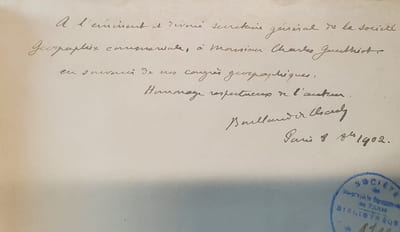 A l'éminent et dévoué secrétaire général de la Société
Géographie commerciale, à Monsieur Charles Gauthiot
en souvenir de nos congrès géographiques.
Hommage respectueux de l'auteur.
Paris 8 1902.
SOCIÉTÉ
de Géographie Commerciale
DE PARIS
BIBLIOTHÈQUE